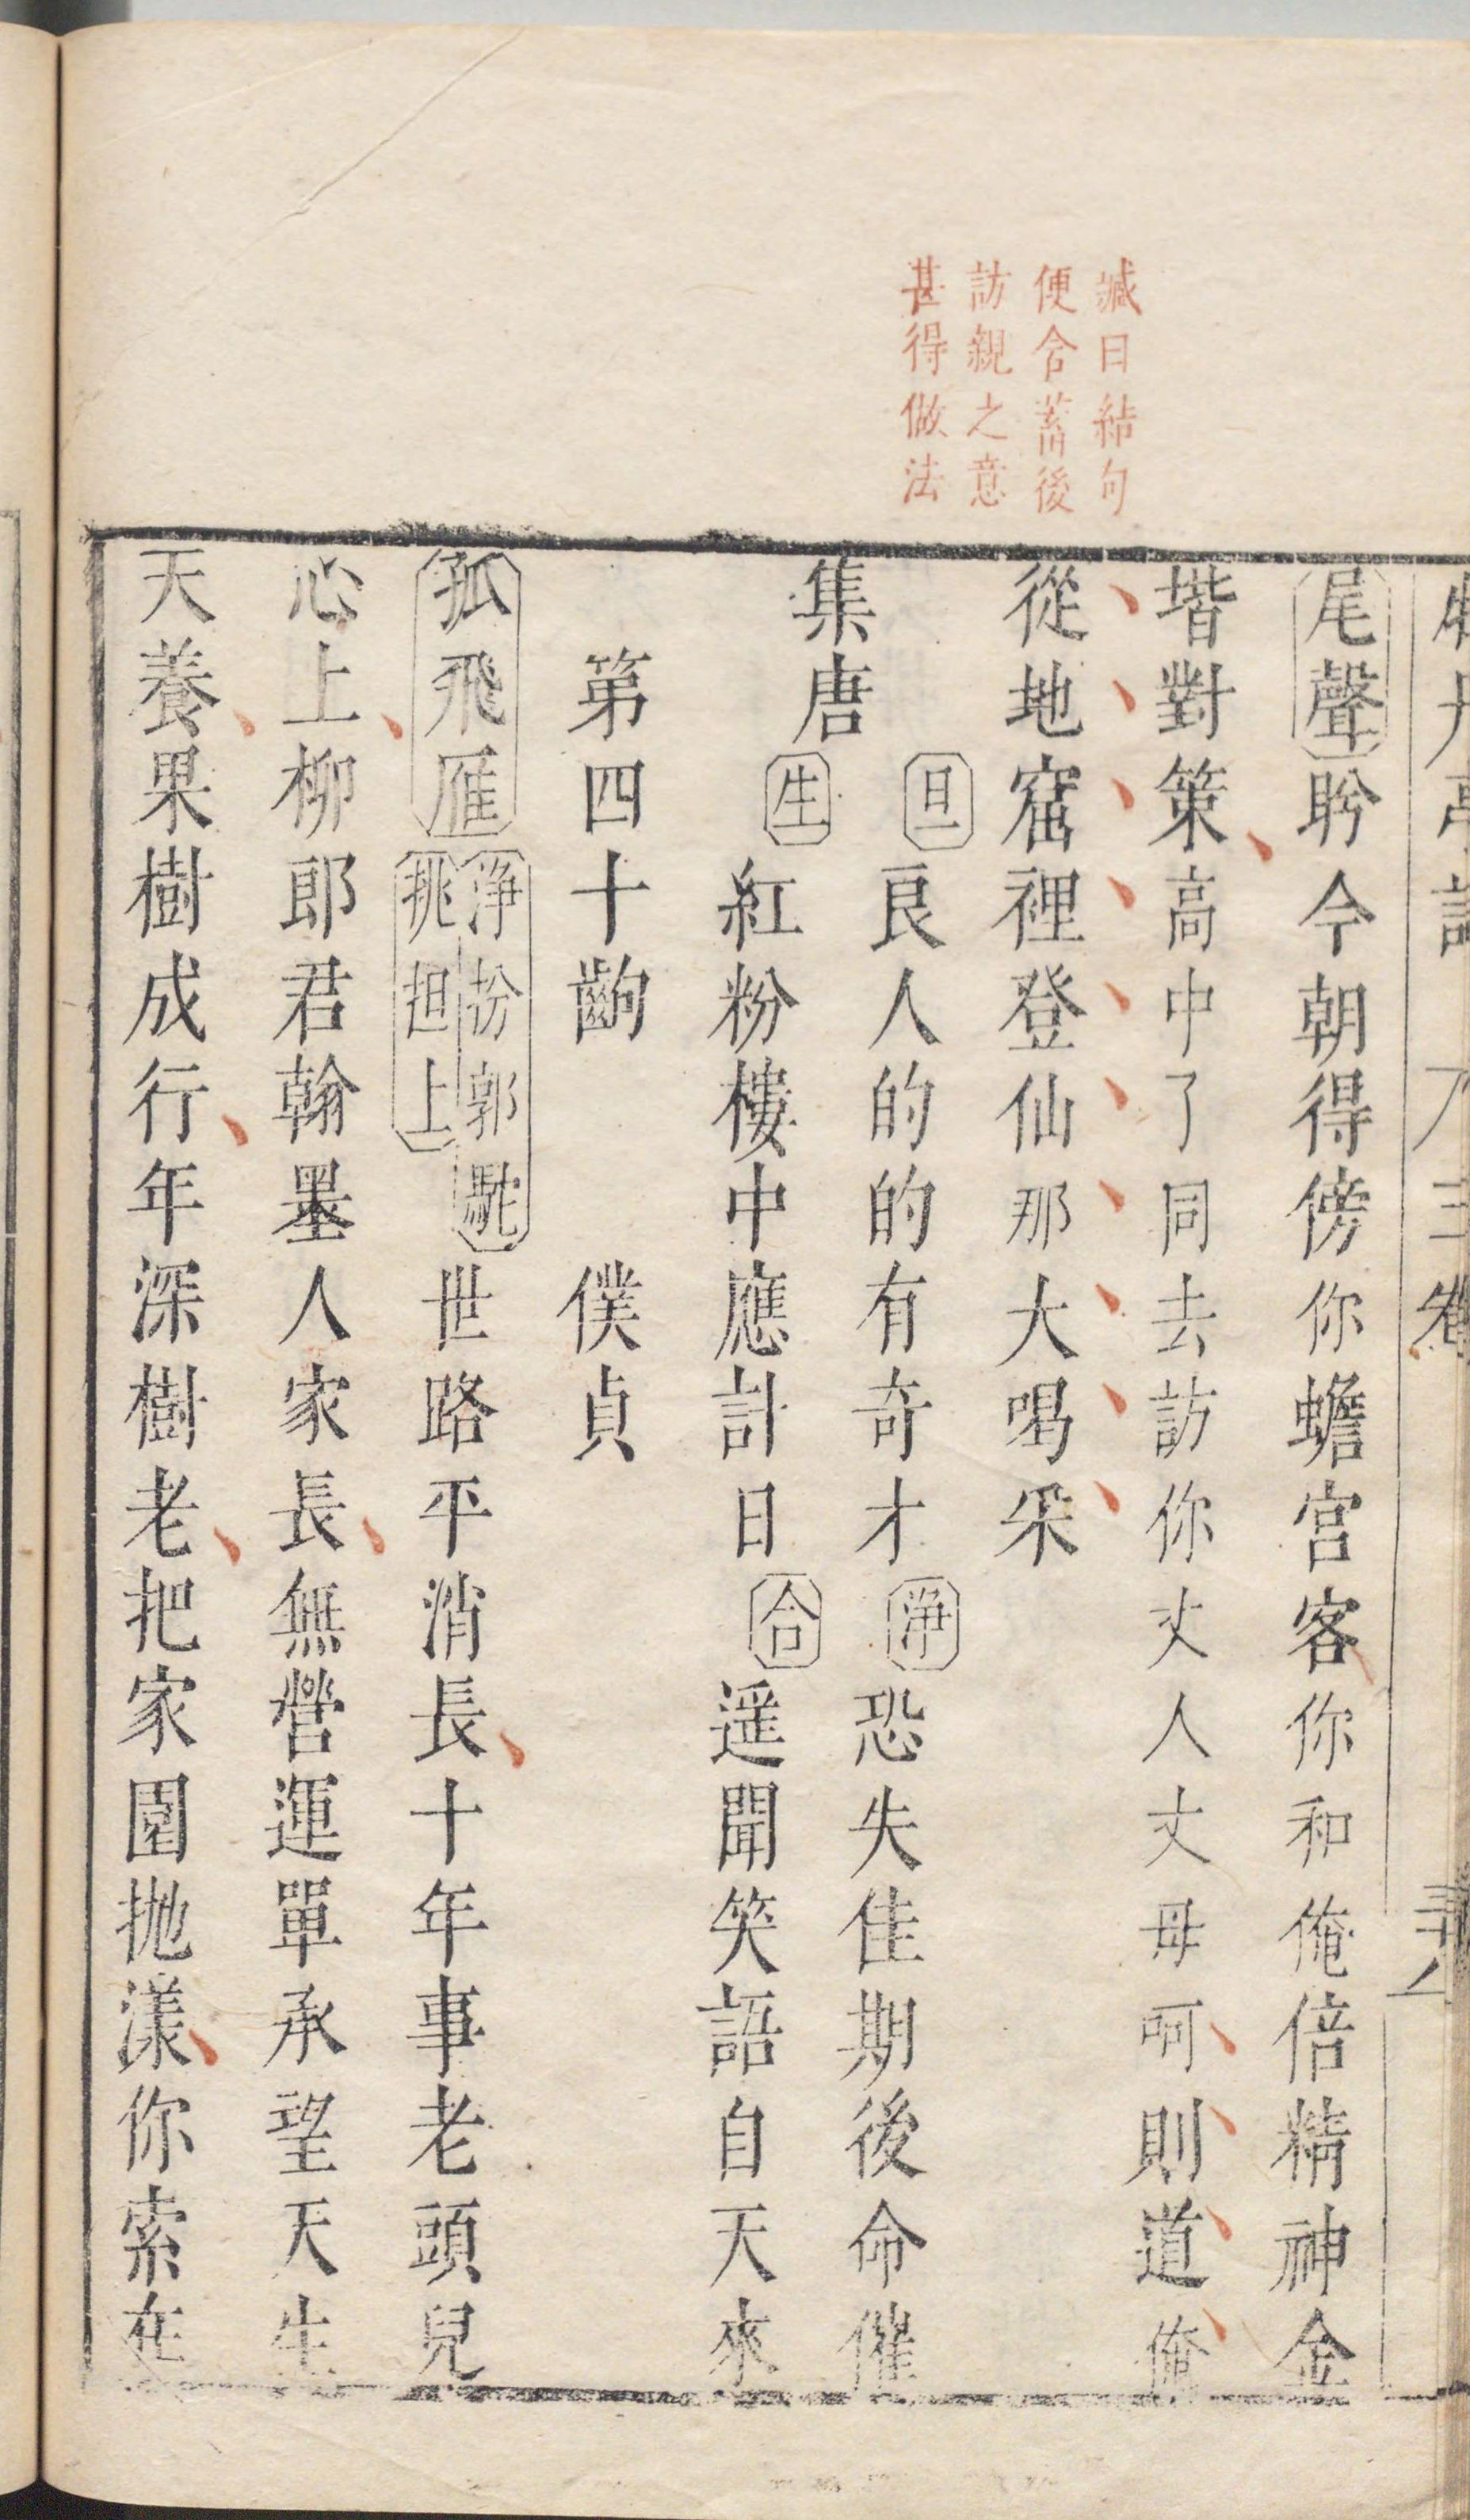 臧曰結句
便含蓄後
訪親之意
甚得做法
牡丹亭記 三卷
尾聲盼今朝得傍你蟾宮客你和俺倍精神金
堦對策高中了同去訪你丈人丈母呵則道俺
從地窟裡登仙那大喝采
集唐
旦良人的的有奇才淨恐失佳期後命催
生紅粉樓中應計日合遥聞笑語自天來
第四十齣 僕貞
孤飛雁淨扮郭駝挑担上世路平消長十年事老頭兒
心上柳郎君翰墨人家長無營運單承望天生
天養果樹成行年深樹老把家園抛漾你索在